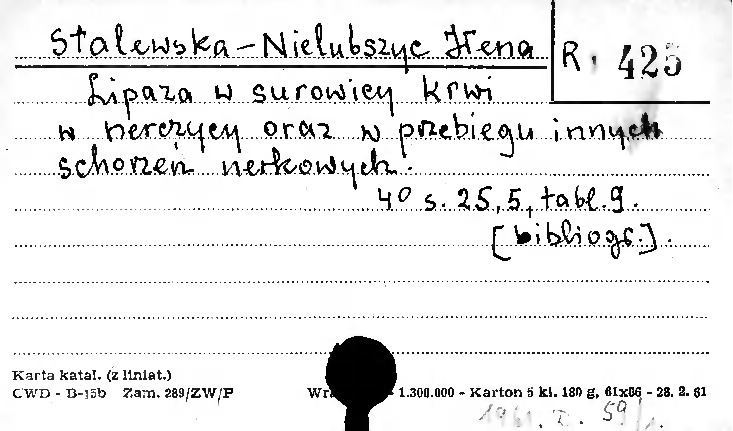 Stalewska-Nielubszyc Irena
R. 425
Lipaza w surowicy krwi
w nerczycy oraz w przebiegu innych
schorzeń nerkowych.
4° s. 25, 5, tabl. 9.
[bibliogr.].
Karta katal. (z liniat.)
CWD - B-15b Zam. 289/ZW/P - 1.300.000 - Karton 5 kl. 180 g, 61x86 - 28. 2. 61
1961. I. 59/1.